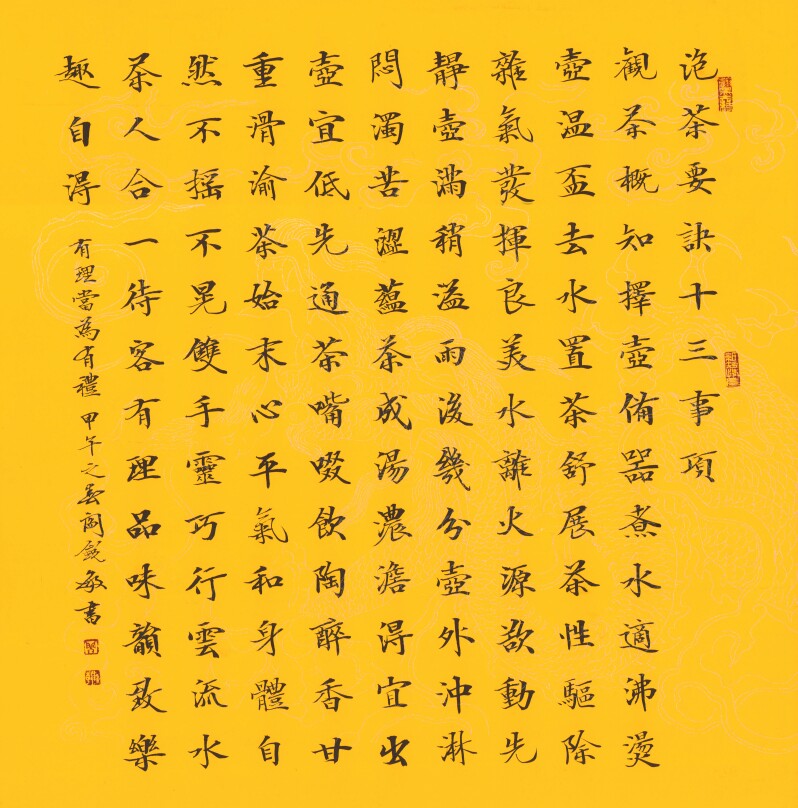 泡茶要訣十三事項
觀茶概知擇壺俻器煮水適沸燙
壺温盃去水置茶舒展茶性驅除
雜氣發揮良美水離火源欲動先
靜壺滿稍溢雨後幾分壺外沖淋
悶濁苦澀蘊茶成湯濃澹得宜出
壺宜低先通茶嘴啜飲陶醉香甘
重滑渝茶始末心平氣和身體自
然不摇不晃雙手靈巧行雲流水
茶人合一待客有理品味韻致樂
趣自得
有理當為有禮 甲午之春 敏書